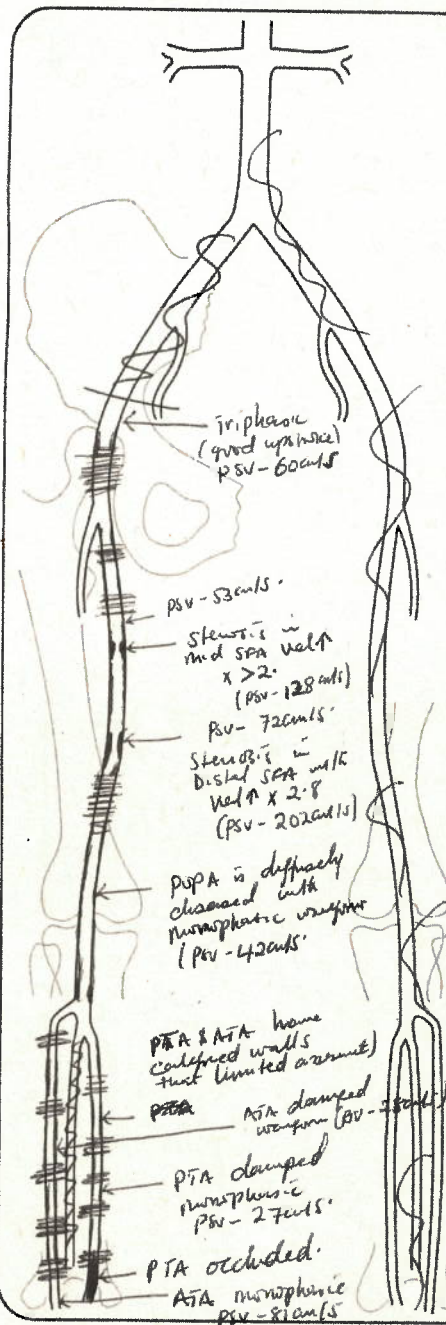 Triphasic
(good upstroke)
PSV - 60cm/s
PSV - 53cm/s.
Stenosis in
mid SFA vel ↑
x >2.
(PSV - 128cm/s)
PSV - 72cm/s.
Stenosis in
Distal SFA with
vel ↑ x 2.8
(PSV - 202cm/s)
POPA is diffusely
diseased with
monophasic waveform
(PSV - 42cm/s.
PTA & ATA have
calcified walls
that limited assessment)
ATA damped
waveform
PTA damped
monophasic
PSV - 27cm/s.
PTA occluded.
ATA monophasic
PSV - 81cm/s